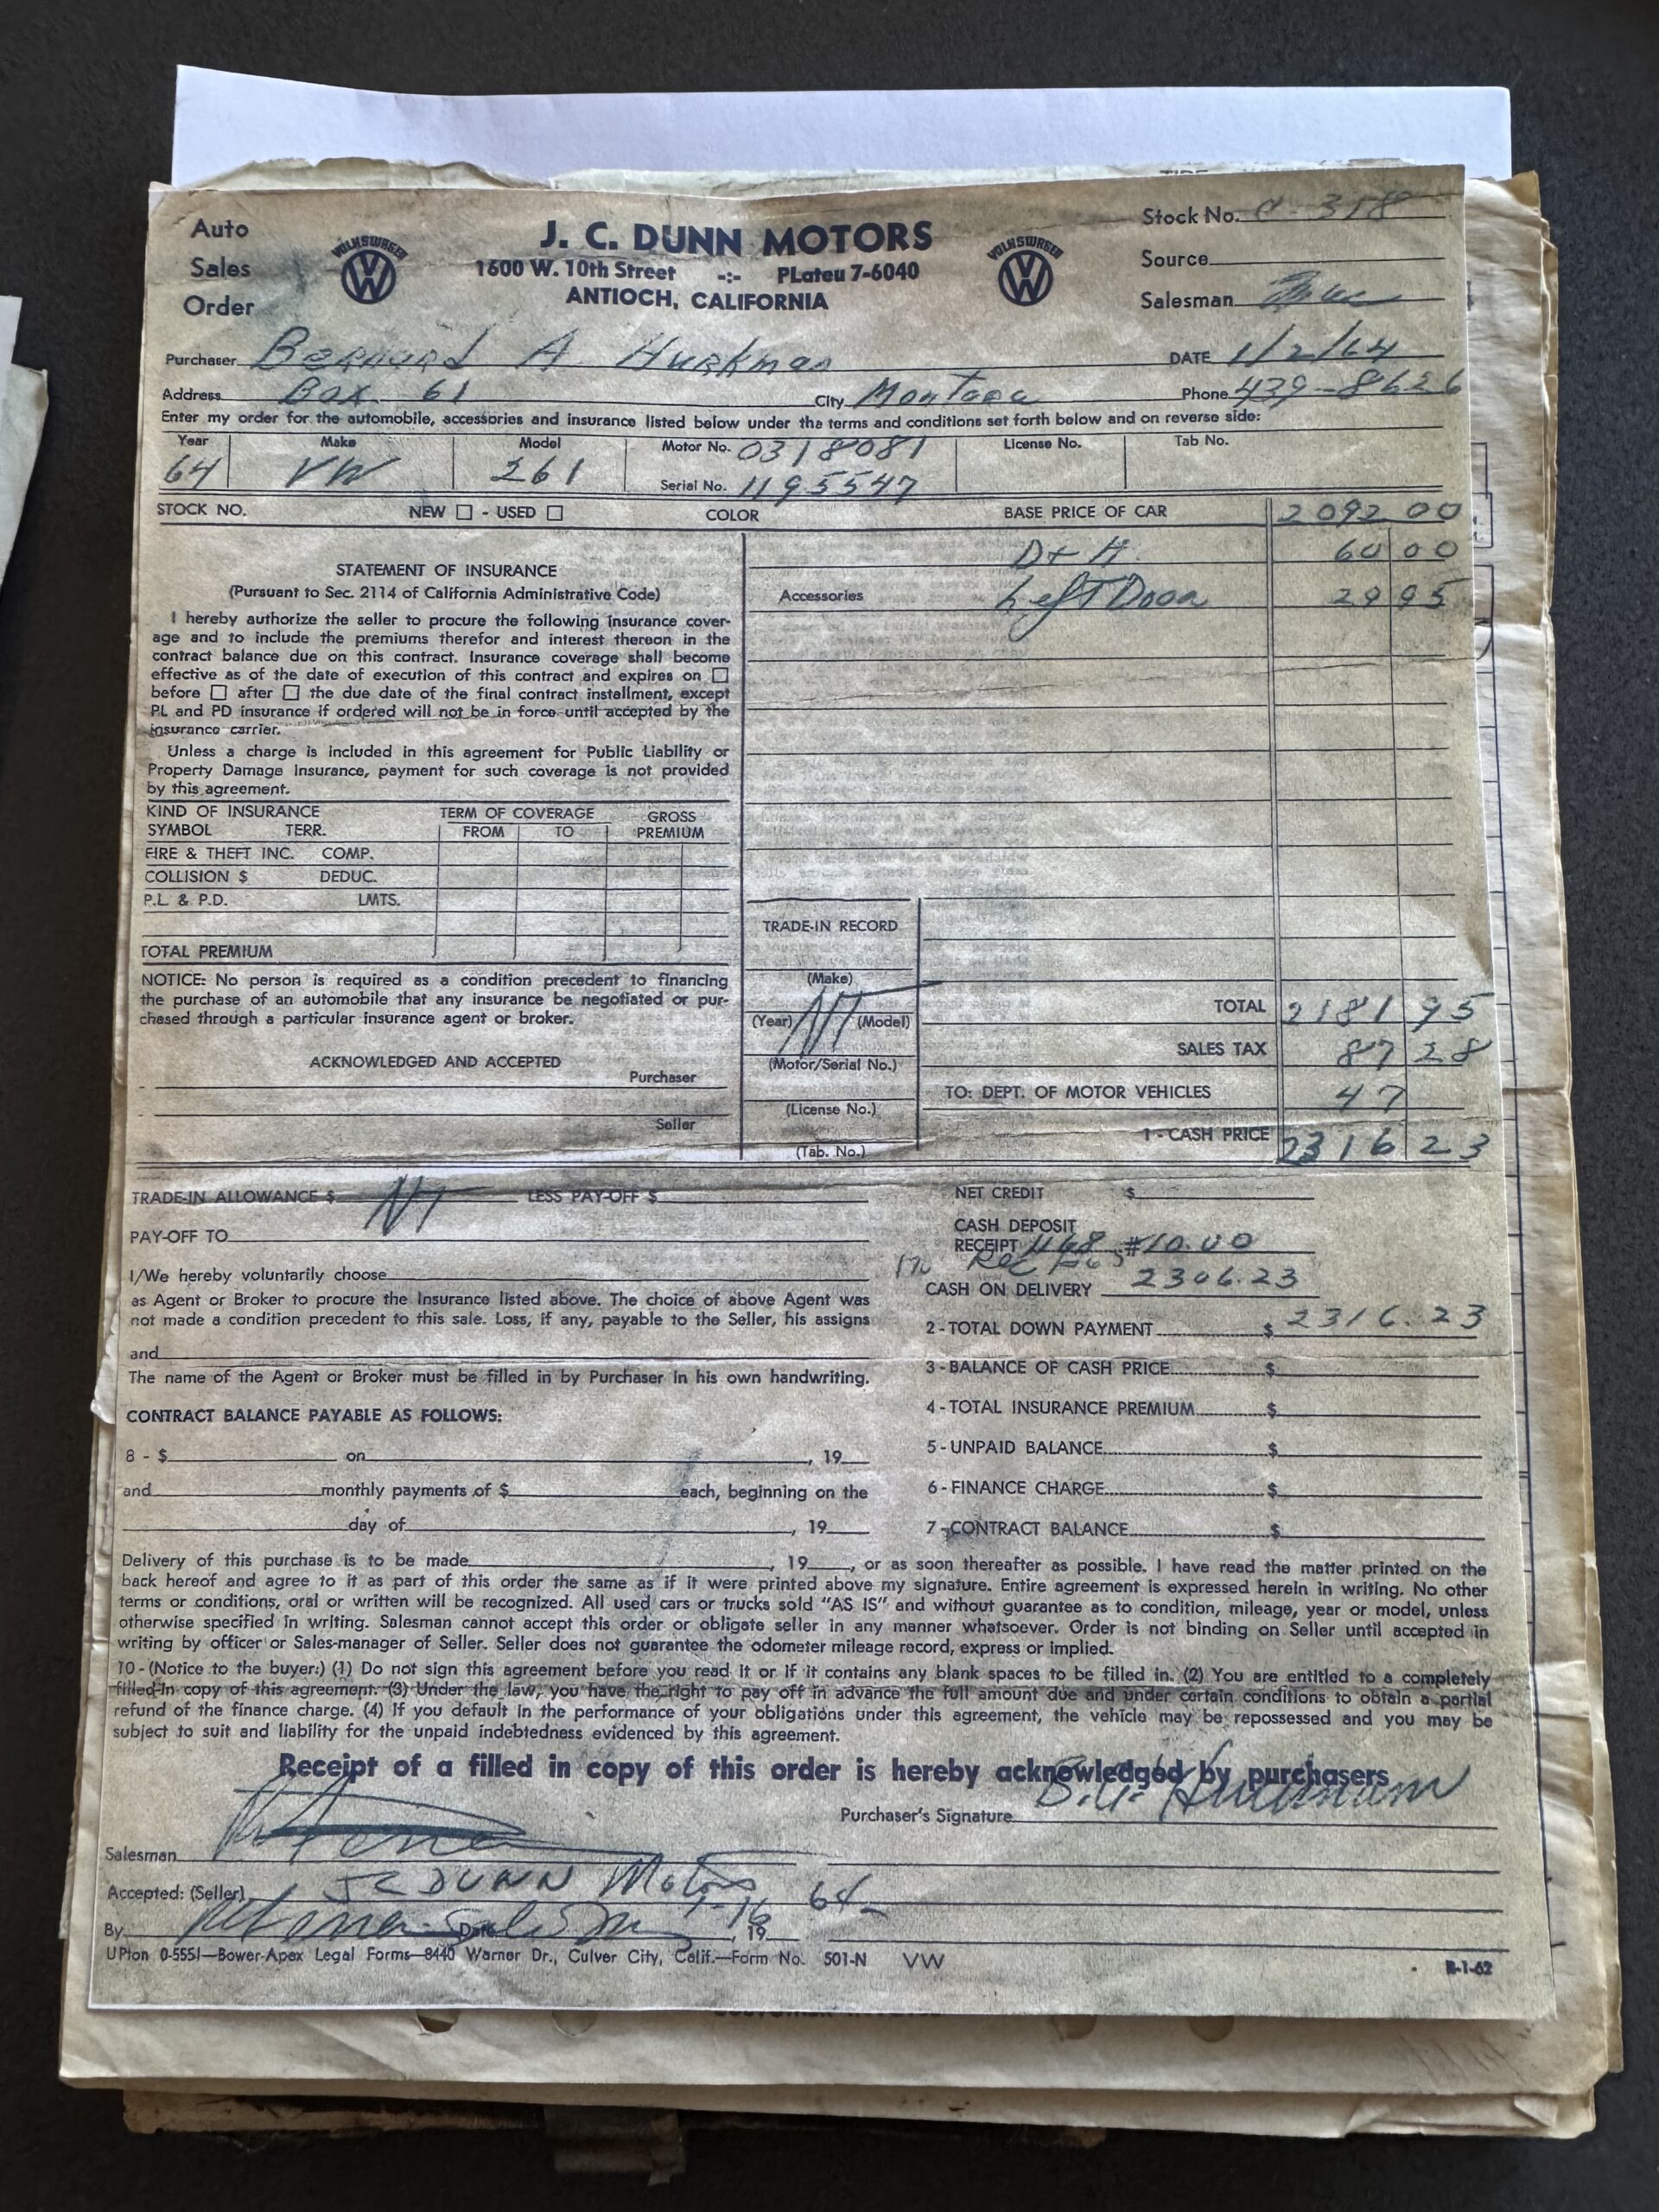 Auto
Sales
Order
VOLKSWAGEN
J. C. DUNN MOTORS
1600 W. 10th Street -:- PLateu 7-6040
ANTIOCH, CALIFORNIA
VOLKSWAGEN
Stock No.
Source
Salesman
Purchaser Bernard A Hurkman DATE 1/2/64
Address Box 61 City Montara Phone 439-8626
Enter my order for the automobile, accessories and insurance listed below under the terms and conditions set forth below and on reverse side:
Year Make Model Motor No. 0318081 License No. Tab No.
64 VW 261 Serial No. 1195547
STOCK NO. NEW ☐ - USED ☐ COLOR BASE PRICE OF CAR 2092 00
D+H 60 00
Accessories Left Door 29 95
STATEMENT OF INSURANCE
(Pursuant to Sec. 2114 of California Administrative Code)
I hereby authorize the seller to procure the following insurance cover-
age and to include the premiums therefor and interest thereon in the
contract balance due on this contract. Insurance coverage shall become
effective as of the date of execution of this contract and expires on ☐
before ☐ after ☐ the due date of the final contract installment, except
PL and PD insurance if ordered will not be in force until accepted by the
insurance carrier.
Unless a charge is included in this agreement for Public Liability or
Property Damage Insurance, payment for such coverage is not provided
by this agreement.
KIND OF INSURANCE TERM OF COVERAGE GROSS
SYMBOL TERR. FROM TO PREMIUM
FIRE & THEFT INC. COMP.
COLLISION $ DEDUC.
P.L. & P.D. LMTS.
TOTAL PREMIUM
NOTICE: No person is required as a condition precedent to financing
the purchase of an automobile that any insurance be negotiated or pur-
chased through a particular insurance agent or broker.
ACKNOWLEDGED AND ACCEPTED
Purchaser
Seller
TRADE-IN RECORD
(Make)
NT
(Year) (Model)
(Motor/Serial No.)
(License No.)
(Tab. No.)
TOTAL 2181 95
SALES TAX 87 28
TO: DEPT. OF MOTOR VEHICLES 47
1 - CASH PRICE 2316 23
TRADE-IN ALLOWANCE $ NT LESS PAY-OFF $
PAY-OFF TO
I/We hereby voluntarily choose
as Agent or Broker to procure the Insurance listed above. The choice of above Agent was
not made a condition precedent to this sale. Loss, if any, payable to the Seller, his assigns
and
The name of the Agent or Broker must be filled in by Purchaser in his own handwriting.
CONTRACT BALANCE PAYABLE AS FOLLOWS:
8 - $ on , 19
and monthly payments of $ each, beginning on the
day of , 19
NET CREDIT $
CASH DEPOSIT
RECEIPT 1168 #10.00
Rec
CASH ON DELIVERY 2306.23
2 - TOTAL DOWN PAYMENT $ 2316.23
3 - BALANCE OF CASH PRICE $
4 - TOTAL INSURANCE PREMIUM $
5 - UNPAID BALANCE $
6 - FINANCE CHARGE $
7 - CONTRACT BALANCE $
Delivery of this purchase is to be made , 19 , or as soon thereafter as possible. I have read the matter printed on the
back hereof and agree to it as part of this order the same as if it were printed above my signature. Entire agreement is expressed herein in writing. No other
terms or conditions, oral or written will be recognized. All used cars or trucks sold "AS IS" and without guarantee as to condition, mileage, year or model, unless
otherwise specified in writing. Salesman cannot accept this order or obligate seller in any manner whatsoever. Order is not binding on Seller until accepted in
writing by officer or Sales-manager of Seller. Seller does not guarantee the odometer mileage record, express or implied.
10 - (Notice to the buyer:) (1) Do not sign this agreement before you read it or if it contains any blank spaces to be filled in. (2) You are entitled to a completely
filled-in copy of this agreement. (3) Under the law, you have the right to pay off in advance the full amount due and under certain conditions to obtain a partial
refund of the finance charge. (4) If you default in the performance of your obligations under this agreement, the vehicle may be repossessed and you may be
subject to suit and liability for the unpaid indebtedness evidenced by this agreement.
Receipt of a filled in copy of this order is hereby acknowledged by purchasers
Purchaser's Signature B.A. Hurkman
Salesman
Accepted: (Seller) JC DUNN Motors
By Date 1-16, 19 64
UPton 0-5551—Bower-Apex Legal Forms—8440 Warner Dr., Culver City, Calif.—Form No. 501-N VW R-1-62